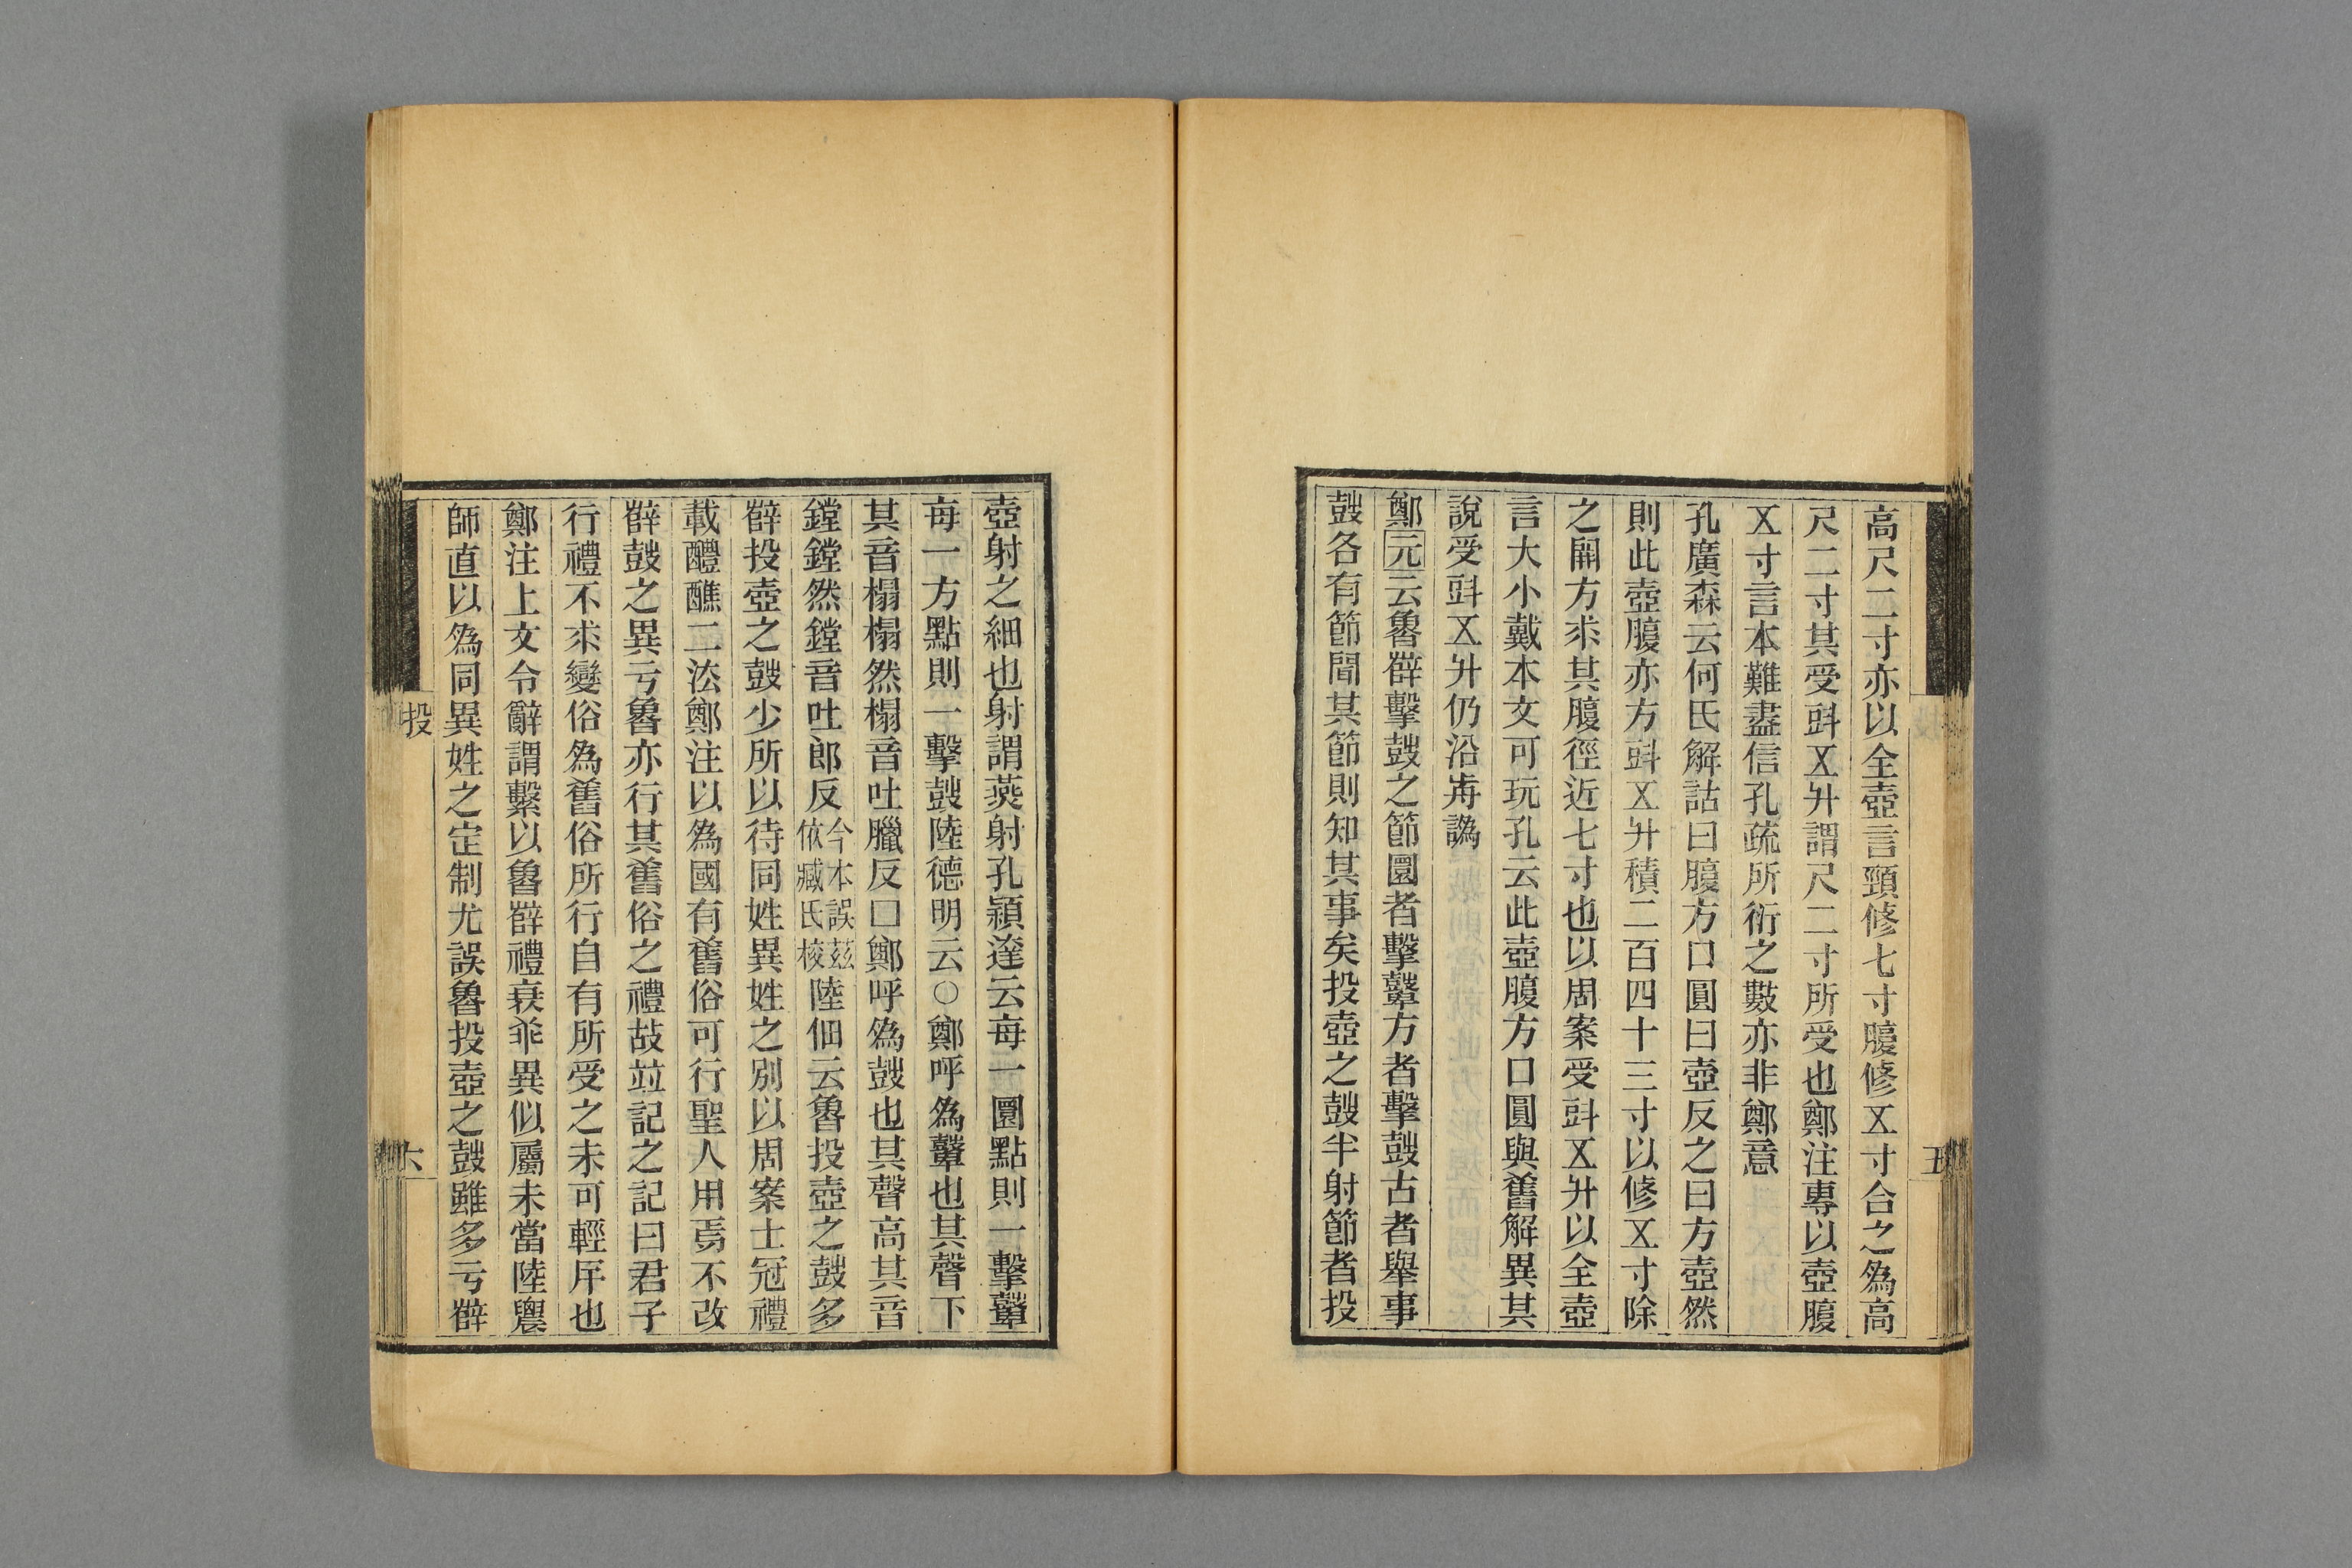 高尺二寸亦以全壺言頸修七寸腹修五寸合之為高
尺二寸其受斗五升謂尺二寸所受也鄭注專以壺腹
五寸言本難盡信孔疏所衍之數亦非鄭意
孔廣森云何氏解詁曰腹方口圓曰壺反之曰方壺然
則此壺腹亦方斗五升積二百四十三寸以修五寸除
之開方求其腹徑近七寸也以周案受斗五升以全壺
言大小戴本文可玩孔云此壺腹方口圓與舊解異其
說受斗五升仍沿歬譌
鄭元云魯薛擊鼓之節圜者擊鼙方者擊鼓古者舉事
鼓各有節聞其節則知其事矣投壺之鼓半射節者投
五
壺射之細也射謂燕射孔穎達云每一圜點則一擊鼙
每一方點則一擊鼓陸德明云○鄭呼為鼙也其聲下
其音榻榻然榻音吐臘反□鄭呼為鼓也其聲高其音
鏜鏜然鏜音吐郎反今本誤茲依臧氏校陸佃云魯投壺之鼓多
薛投壺之鼓少所以待同姓異姓之別以周案士冠禮
載醴醮二法鄭注以為國有舊俗可行聖人用焉不改
薛鼓之異亏魯亦行其舊俗之禮故竝記之記曰君子
行禮不求變俗為舊俗所行自有所受之未可輕厈也
鄭注上文令辭謂繫以魯薛禮衰乖異似屬未當陸農
師直以為同異姓之定制尤誤魯投壺之鼓雖多亏薛
投
六